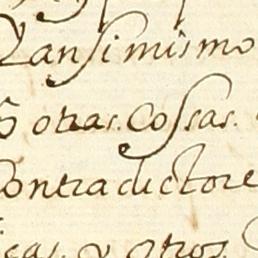 Yansimismo
otras. Cossas.
Contradictore
y otros